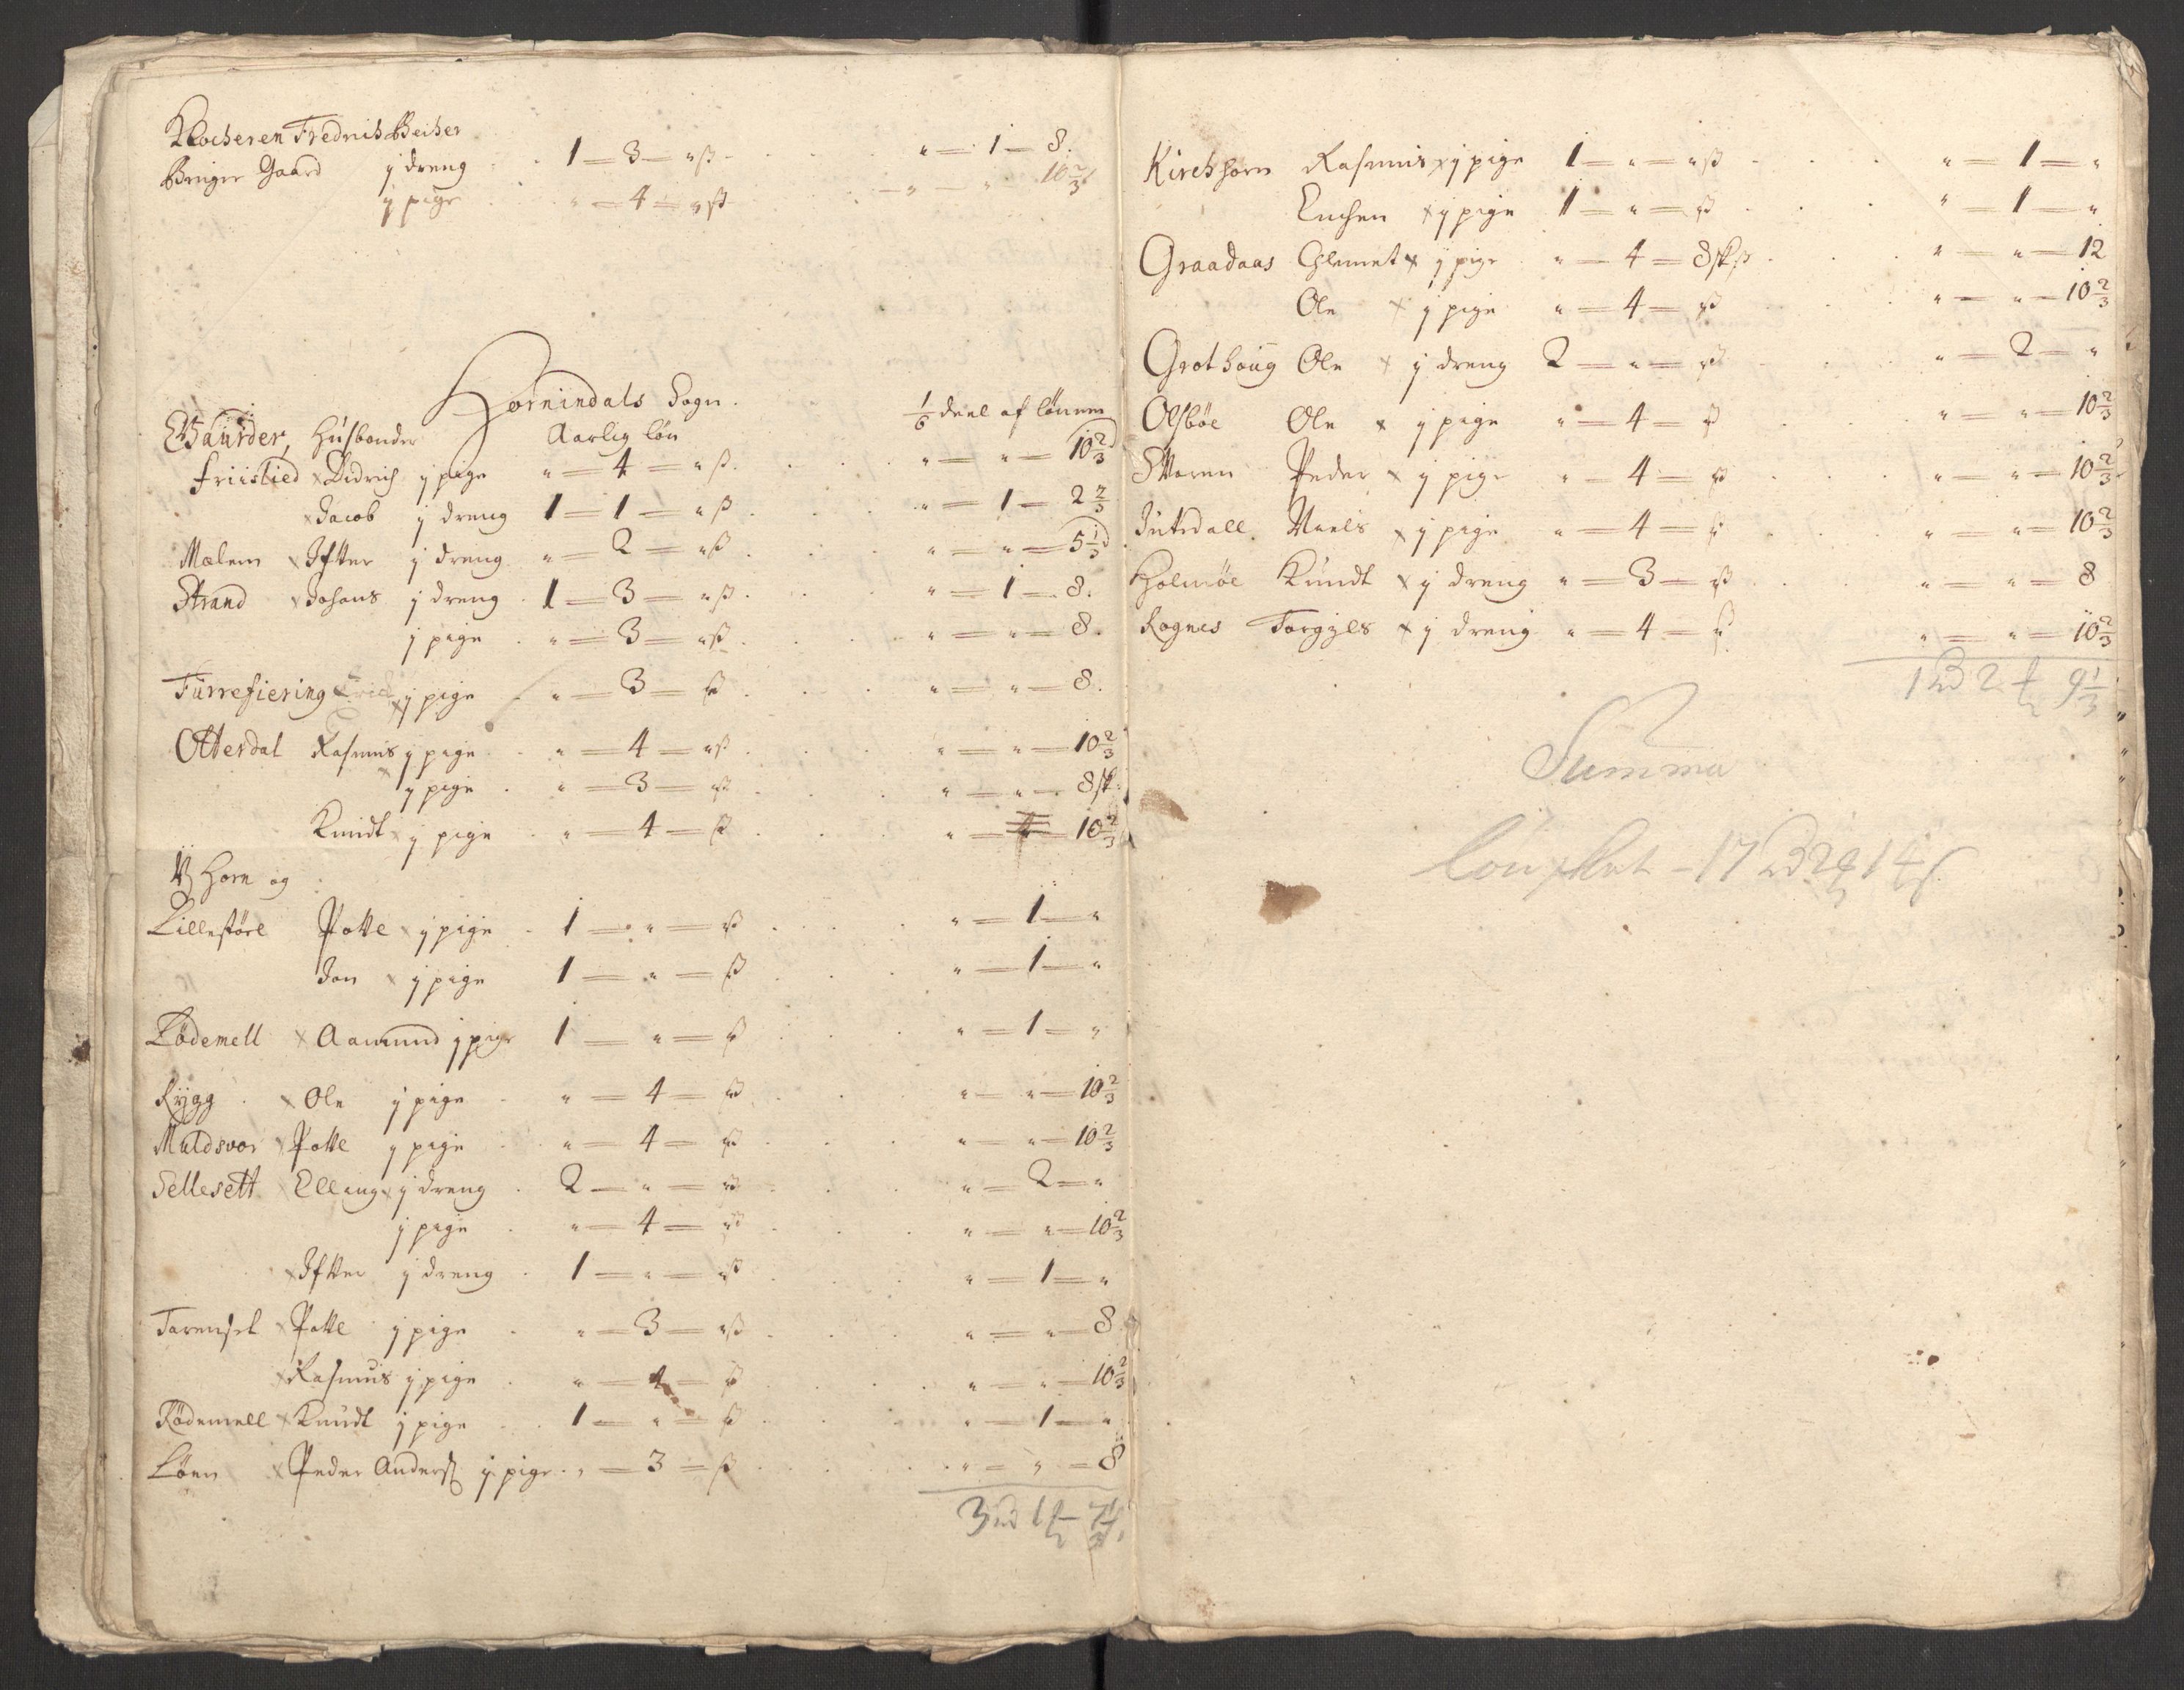 Klocheren Fredrich Becher
Bringer Gaard j dreng 1 — 3 — " ß " — 1 — 8.
j pige " — 4 — " ß " — " — 10 2/3
Hornindals Sogn.
Gaurder, Husbonder Aarlig løn 1/6 deel af lønnen
Friislied x Didrich j pige " — 4 — " ß " — " — 10 2/3
x Jacob j dreng 1 — 1 — " ß " — 1 — 2 2/3
Mælem x Ifver j dreng " — 2 — " ß " — " — 5 1/3
Strand x Johans j dreng 1 — 3 — " ß " — 1 — 8.
j pige " — 3 — " ß " — " — 8.
Türrefiering x j pige " — 3 — ß " — " — 8.
Otterdal Rasmus j pige " — 4 — " ß " — " — 10 2/3
x j pige " — 3 — " ß " — " — 8 sk
Knudt x j pige " — 4 — ß " — 10 2/3
Horn og
Lillestøre Polle x j pige 1 — " — " ß " — 1 — "
Jon x j pige 1 — " — ß " — 1 — "
Lödemell x Aamund j pige 1 — " — ß " — 1 — "
Rygg x Ole j pige " — 4 — " ß " — " — 10 2/3
Muldsvor x Polle j pige " — 4 — " ß " — " — 10 2/3
Sellesett x Elling x j dreng 2 — " — " ß " — 2 — "
j pige " — 4 — " ß " — " — 10 2/3
x Ifver j dreng 1 — " — " ß " — 1 — "
Tarensel x Polle j pige " — 3 — " ß " — " — 8
x Rasmus j pige " — 4 — ß " — " — 10 2/3
Rödemell x Knudt j pige 1 — " — ß " — 1 — "
Löen x Peder Anders j pige " — 3 — ß " — " — 8
Kirchhorn Rasmus x j pige 1 — " — " ß " — 1 — "
Enchen x j pige 1 — " — " ß " — 1 — "
Graadaas Clemet x j pige " — 4 — 8 sk ß " — " — 12
Ole x j pige " — 4 — " ß " — " — 10 2/3
Grothoug Ole x j dreng 2 — " — " ß " — 2 — "
Olsbøe Ole x j pige " — 4 — ß " — " — 10 2/3
Svoren Peder x j pige " — 4 — " ß " — " — 10 2/3
Indredall Neels x j pige " — 4 — ß " — " — 10 2/3
Holmöe Knudt x j dreng " — 3 — " ß " — " — 8
Rognes Torgyls x j dreng " — 4 — ß " — " — 10 2/3
Summa